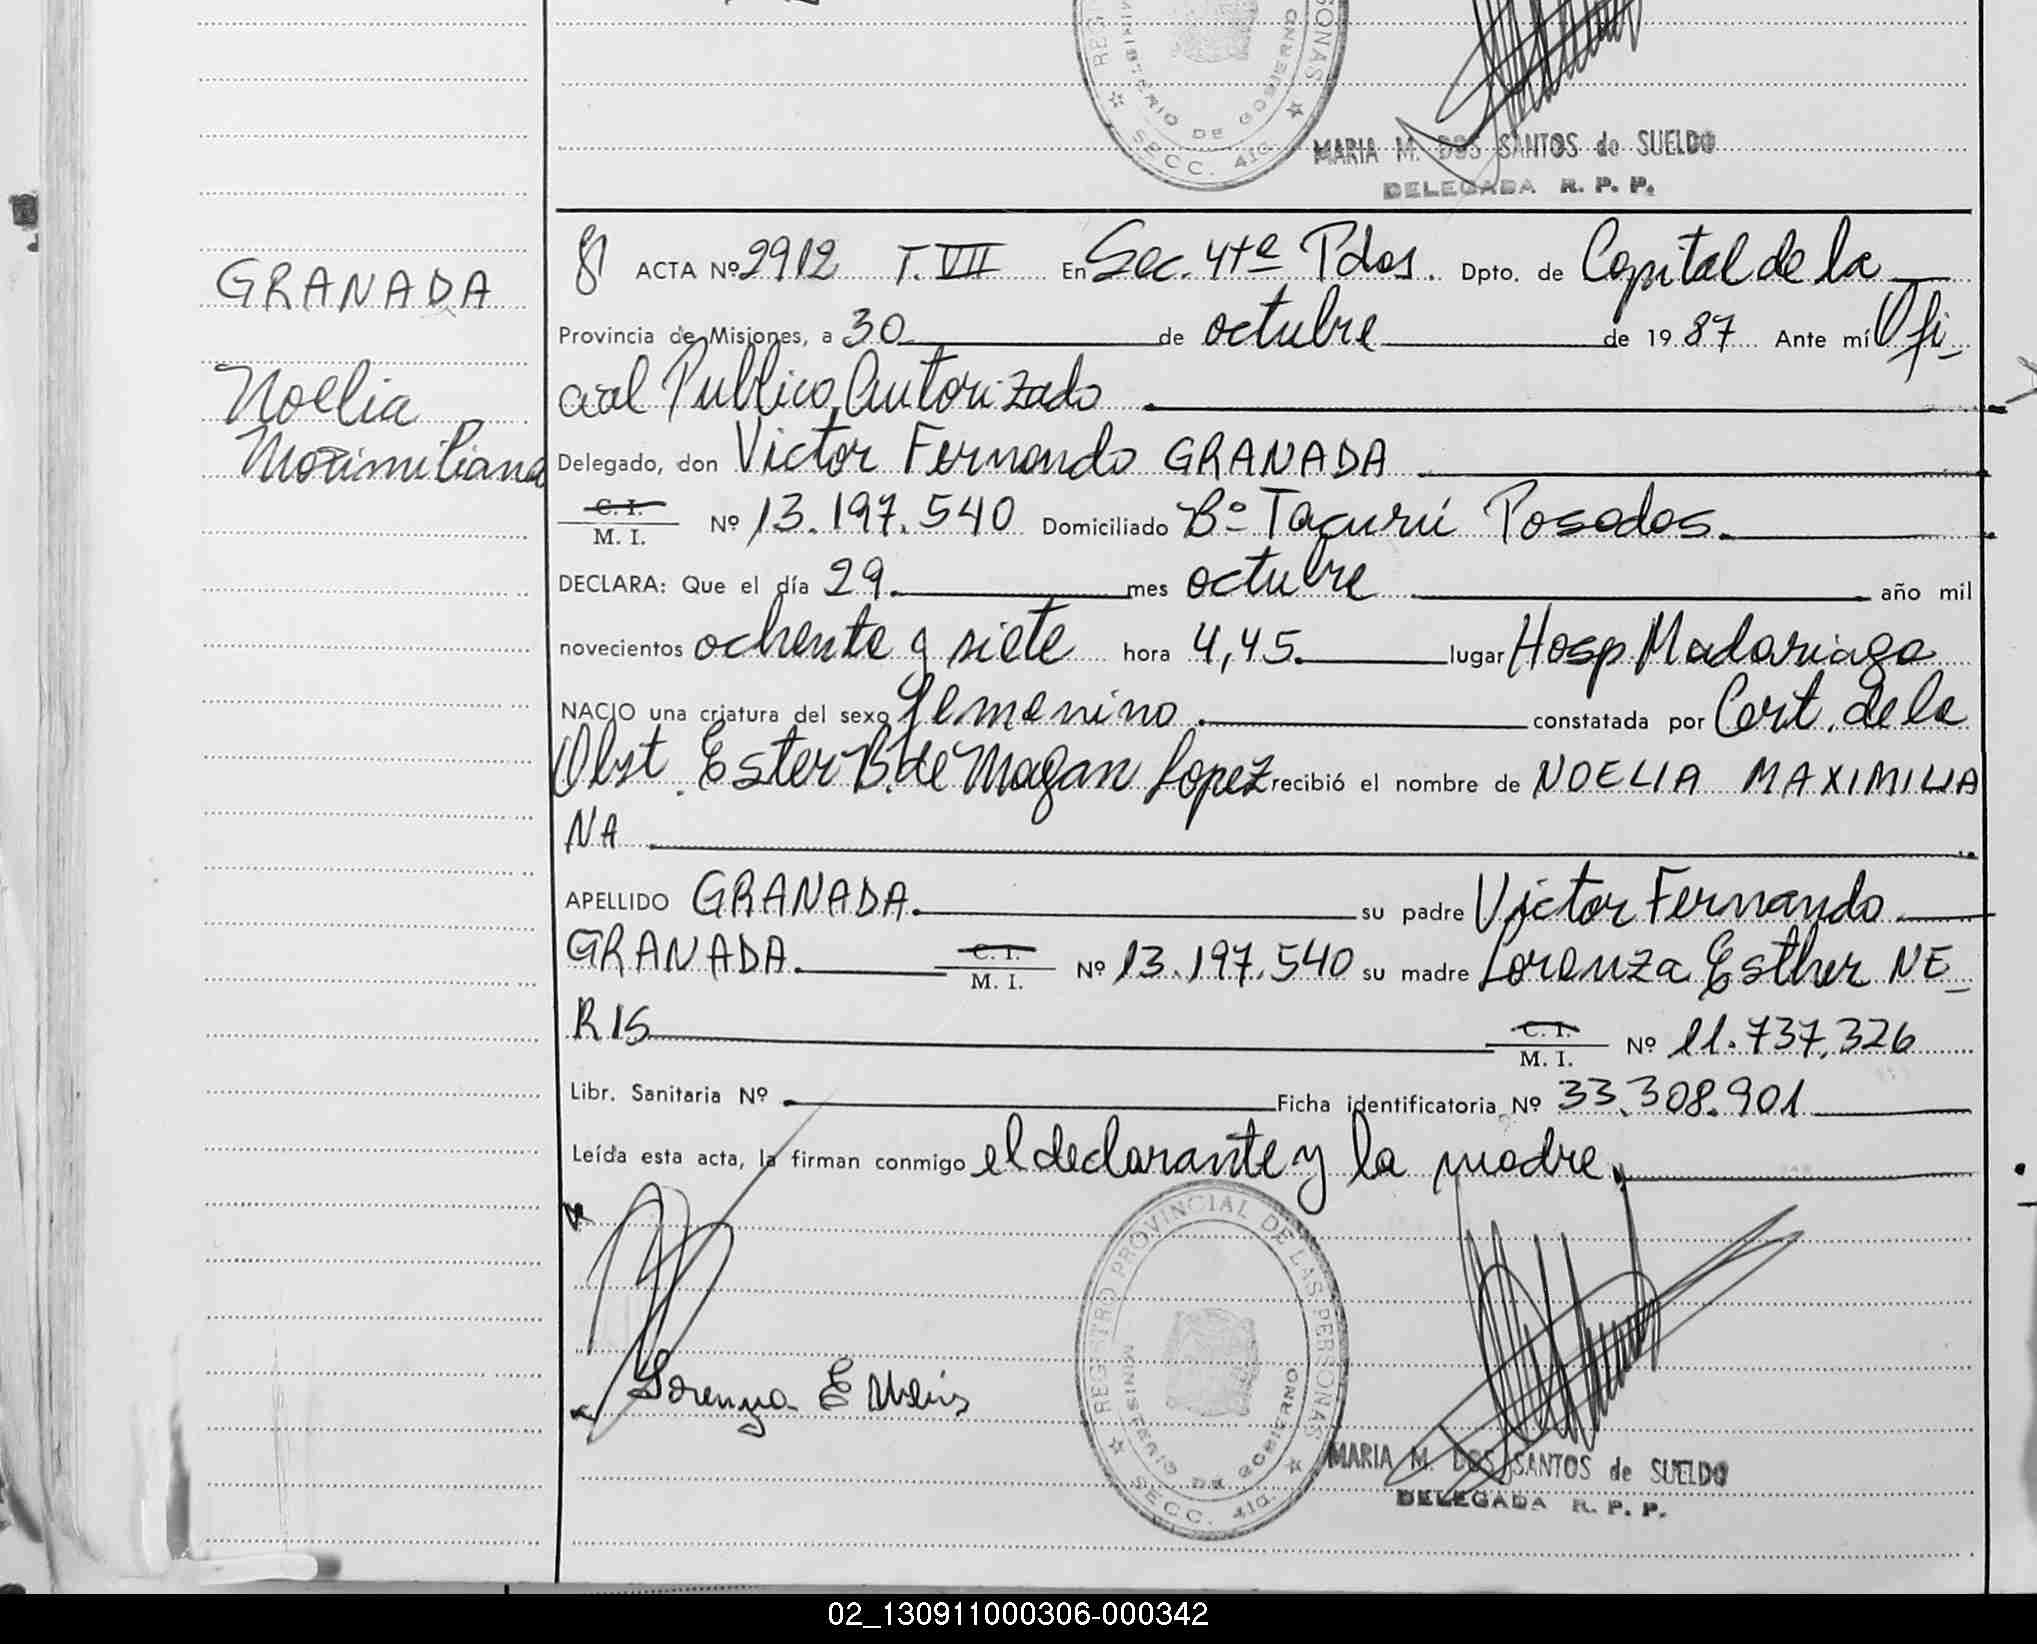 MARIA M. DOS SANTOS de SUELDO
DELEGADA R. P. P.
GRANADA
Noelia
Maximiliana
ACTA Nº 2912 T. VII En Sec. 4ta Pdas. Dpto. de Capital de la
Provincia de Misiones, a 30 de octubre de 1987 Ante mí Ofi-
cial Publico Autorizado
Delegado, don Victor Fernando GRANADA
C. I.
M. I. Nº 13.197.540 Domiciliado Bº Tacurú Posadas.
DECLARA: Que el día 29 mes octubre año mil
novecientos ochenta y siete hora 4,45 lugar Hosp Madariaga
NACIO una criatura del sexo femenino. constatada por Cert. de la
Obst. Ester B. de Magan Lopez recibió el nombre de NOELIA MAXIMILIA
NA
APELLIDO GRANADA. su padre Victor Fernando
GRANADA. C. I. M. I. Nº 13.197.540 su madre Lorenza Esther NE-
RIS C. I. M. I. Nº 11.737.326
Libr. Sanitaria Nº Ficha identificatoria Nº 33.308.901
Leída esta acta, la firman conmigo el declarante y la madre,
REGISTRO PROVINCIAL DE LAS PERSONAS
MINISTERIO DE GOBIERNO
SECC. 4ta.
Lorenza E Neris
MARIA M. DOS SANTOS de SUELDO
DELEGADA R. P. P.
02_130911000306-000342